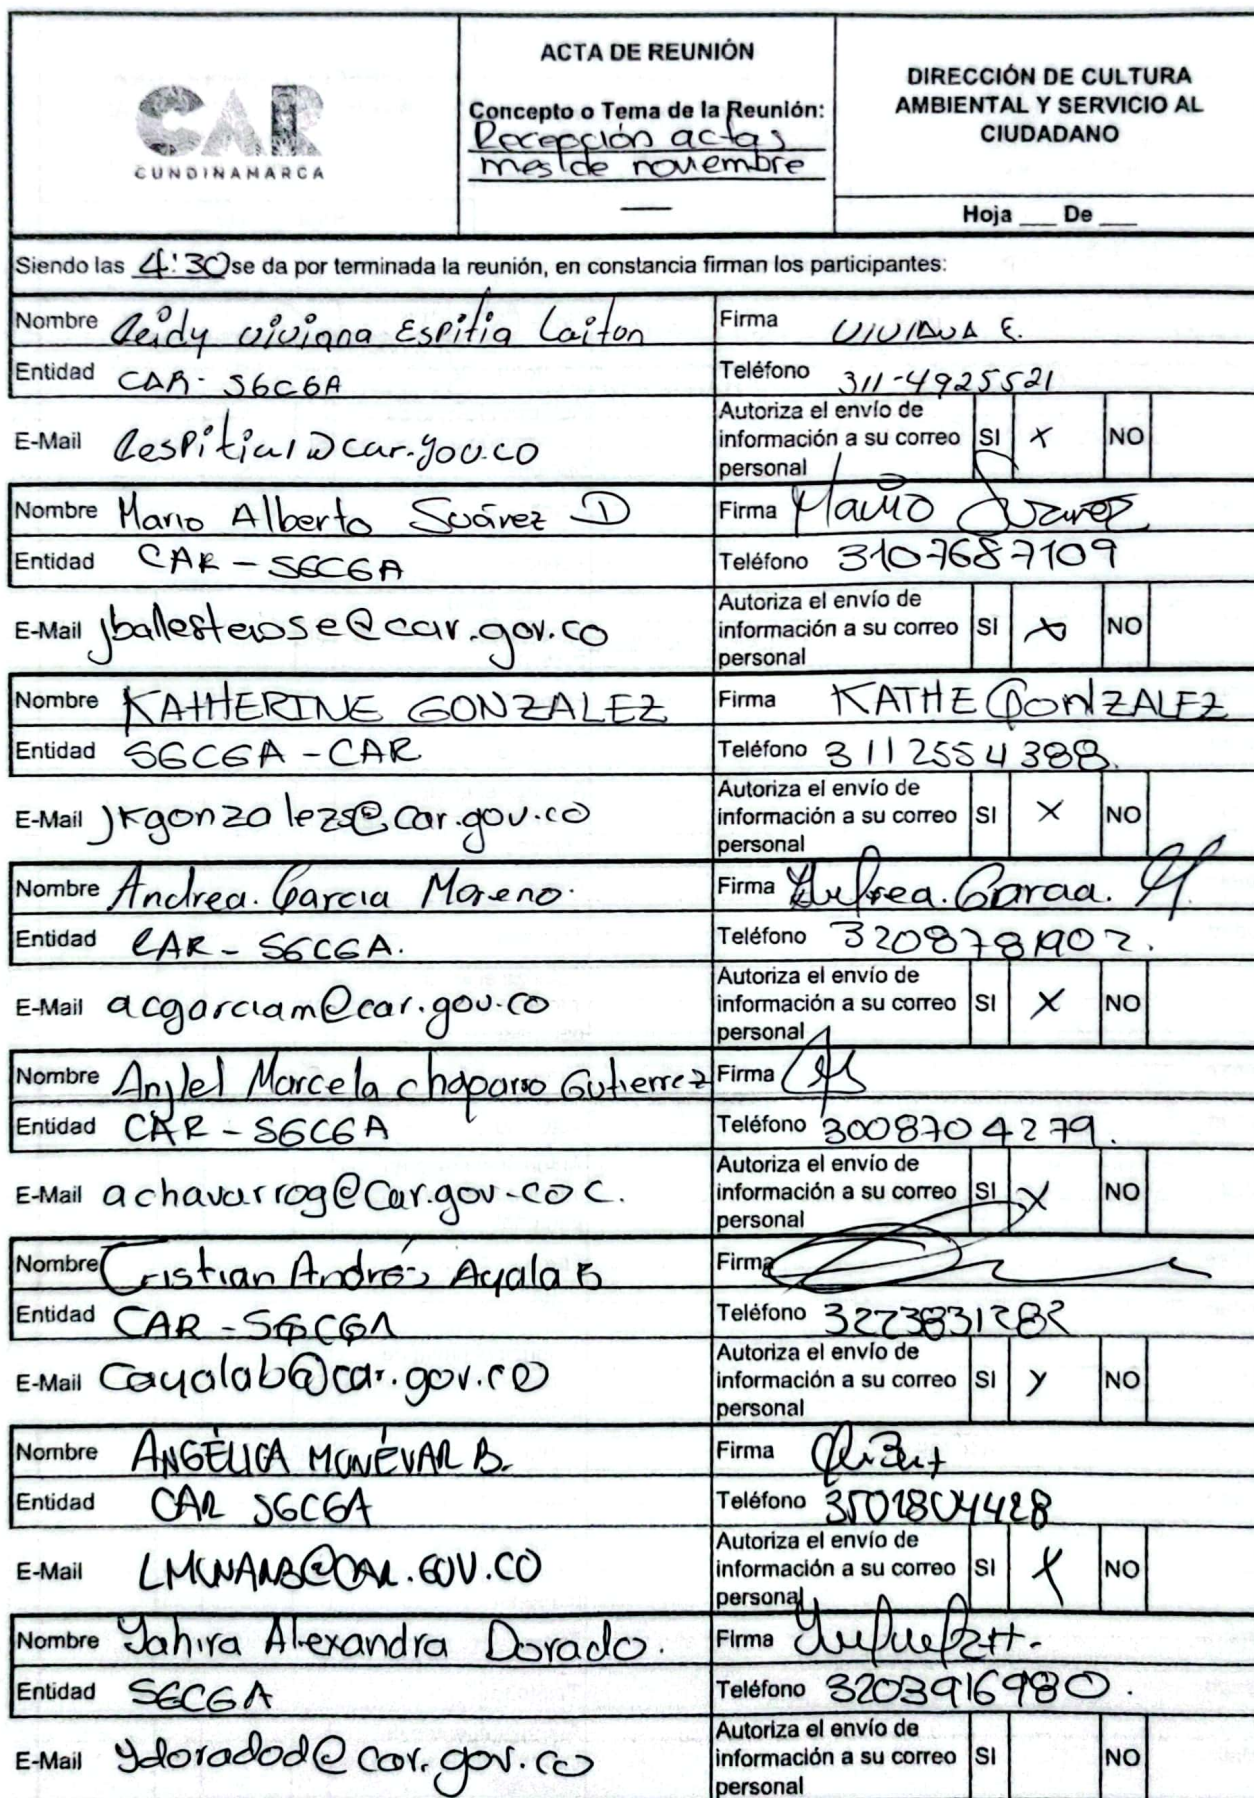 CAR
CUNDINAMARCA
ACTA DE REUNIÓN
Concepto o Tema de la Reunión:
Recepción actas
mes de noviembre
DIRECCIÓN DE CULTURA
AMBIENTAL Y SERVICIO AL
CIUDADANO
Hoja ___ De ___
Siendo las 4:30 se da por terminada la reunión, en constancia firman los participantes:
Nombre Leidy viviana Espitia Laiton
Firma VIVIANA E.
Entidad CAR - SGCGA
Teléfono 311-4925521
E-Mail lespitial@car.gov.co
Autoriza el envío de
información a su correo SI X NO
personal
Nombre Mario Alberto Suárez D
Firma Mario Suarez
Entidad CAR - SGCGA
Teléfono 3107687109
E-Mail jballesterose@car.gov.co
Autoriza el envío de
información a su correo SI X NO
personal
Nombre KATHERINE GONZALEZ
Firma KATHE GONZALEZ
Entidad SGCGA - CAR
Teléfono 3112554388.
E-Mail jkgonzalezs@car.gov.co
Autoriza el envío de
información a su correo SI X NO
personal
Nombre Andrea. Garcia Moreno.
Firma Andrea. Garcia. M.
Entidad CAR - SGCGA.
Teléfono 3208781902.
E-Mail acgarciam@car.gov.co
Autoriza el envío de
información a su correo SI X NO
personal
Nombre Marcela chaparro Gutierrez
Firma
Entidad CAR - SGCGA
Teléfono 3008704279.
E-Mail achavarrog@Car.gov-co C.
Autoriza el envío de
información a su correo SI X NO
personal
Nombre Cristian Andrés Ayala B
Firma
Entidad CAR - SGCGA
Teléfono 3223831282
E-Mail Cayalab@car.gov.co
Autoriza el envío de
información a su correo SI y NO
personal
Nombre ANGÉLICA MUNÉVAR B.
Firma
Entidad CAR SGCGA
Teléfono 3501804428
E-Mail @CAR.GOV.CO
Autoriza el envío de
información a su correo SI X NO
personal
Nombre Yahira Alexandra Dorado.
Firma
Entidad SGCGA
Teléfono 3203916980.
E-Mail Ydoradod@car.gov.co
Autoriza el envío de
información a su correo SI NO
personal